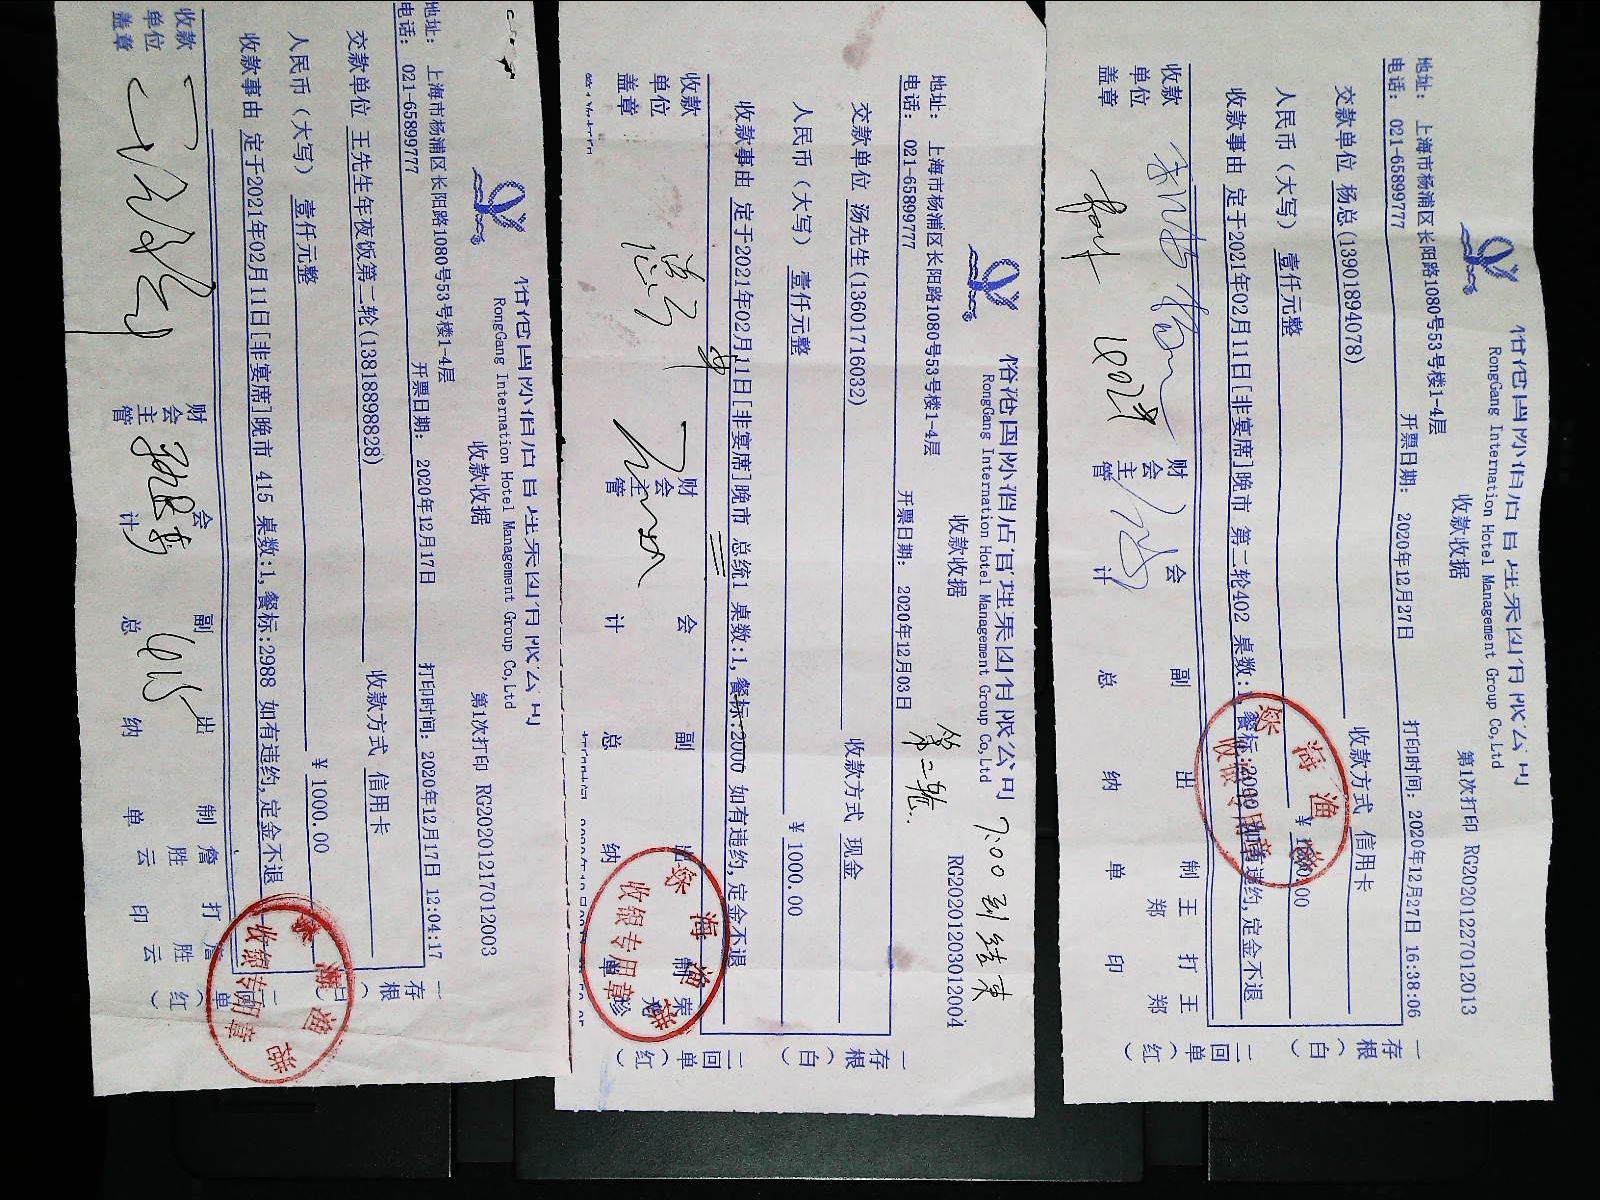 RongGang International Hotel Management Group Co,Ltd
收款收据
第1次打印 RG20201217012003
地址: 上海市杨浦区长阳路1080号53号楼1-4层
电话: 021-65899777
开票日期: 2020年12月17日
打印时间: 2020年12月17日 12:04:17
交款单位 王先生年夜饭第二轮(13818898828)
收款方式 信用卡
人民币（大写） 壹仟元整
￥1000.00
收款事由 定于2021年02月11日[非宴席]晚市 415 桌数:1,餐标:2988 如有违约,定金不退
收款单位盖章
财会主管
会计
副总
出纳
制单 詹胜云
打印 詹胜云
415
收银专用章
RongGang International Hotel Management Group Co,Ltd
7:00到结束
收款收据
第二轮
RG20201203012004
地址: 上海市杨浦区长阳路1080号53号楼1-4层
电话: 021-65899777
开票日期: 2020年12月03日
交款单位 汤先生(13601716032)
收款方式 现金
人民币（大写） 壹仟元整
￥1000.00
收款事由 定于2021年02月11日[非宴席]晚市 总统1 桌数:1,餐标:2000 如有违约,定金不退
收款单位盖章
财会主管
会计
副总
出纳
制单
一存根（白）
二回单（红）
深海渔港
收银专用章
RongGang International Hotel Management Group Co,Ltd
收款收据
第1次打印 RG20201227012013
地址: 上海市杨浦区长阳路1080号53号楼1-4层
电话: 021-65899777
开票日期: 2020年12月27日
打印时间: 2020年12月27日 16:38:06
交款单位 杨总(13901894078)
收款方式 信用卡
人民币（大写） 壹仟元整
￥1000.00
收款事由 定于2021年02月11日[非宴席]晚市 第二轮402 桌数:1,餐标:2000 如有违约,定金不退
收款单位盖章
财会主管
会计
副总
出纳
制单 王郑
打印 王郑
402
一存根（白）
二回单（红）
深海渔港
收银专用章